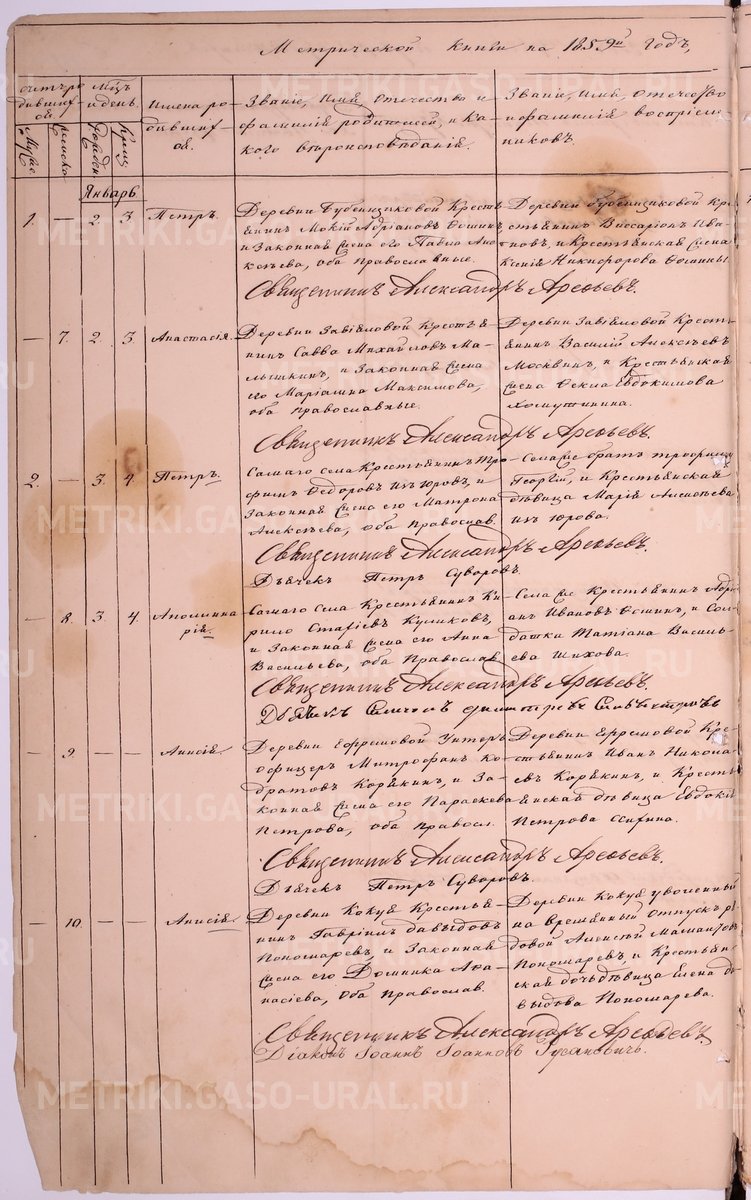 Метрической книги на 1859й годъ,
счетъ родившихся.
Муже
женска
Мѣцъ и день.
рожден
Крещ
Имена родившихся.
Званіе, Имя, Отечество и
фамилія родителей, и ка-
кого вѣроисповѣданія.
Званіе, Имя, Отечество
и фамилія воспріем-
никовъ.
Январь
1. — 2. 3. Петръ.
Деревни Бубенщиковой Кресть-
янинъ Мокій Адріановъ Ѳоминъ
и Законная жена его Павла Але-
ксѣева, оба православные.
Деревни Бубенщиковой Кре-
стьянинъ Виссаріонъ Ива-
новъ, и Крестьянская жена
Ксенія Никифорова Ѳомины
Священникъ Александръ Арефьевъ.
— 7. 2. 3. Анастасія.
Деревни Завьяловой Крестья-
нинъ Савва Михайловъ Ма-
лышкинъ, и Законная жена
его Маріамна Максимова,
оба православные.
Деревни Завьяловой Кресть-
янинъ Василій Алексѣевъ
Москвинъ, и Крестьянская
жена Ѳекла Евдокимова
Хомутинина.
Священникъ Александръ Арефьевъ.
2. — 3. 4. Петръ.
Самаго села Крестьянинъ Тро-
фимъ Ѳедоровъ
Законная жена его Матрона
Алексѣева, оба Православ.
Села же братъ трофима
Георгій, и Крестьянская
дѣвица Марія Алексѣева
Священникъ Александръ Арефьевъ.
Дьячекъ Петръ Суворовъ.
— 8. 3. 4. Аполлинарія.
Самаго села Крестьянинъ Ки-
рило Стафіевъ Куликовъ,
и Законная жена его Анна
Васильева, оба Православ.
Села же Крестьянинъ Адрі-
анъ Ивановъ Ѳоминъ, и Сол-
датка Татіана Василь-
ева Шихова.
Священникъ Александръ Арефьевъ.
— 9. — — Анисія.
Деревни Ефремовой Унтеръ
офицеръ Митрофанъ Ко-
дратовъ Корякинъ, и За-
конная жена его Параскева
Петрова, оба правосл.
Деревни Ефремовой Кре-
стьянинъ Иванъ Никона-
евъ Корякинъ, и Кресть-
янская дѣвица Евдокія
Петрова
Священникъ Александръ Арефьевъ.
Дьячекъ Петръ Суворовъ.
— 10. — — Анисія.
Деревни Кокуя Крестья-
нинъ Гавріилъ Давыдовъ
Пономаревъ, и Законная
жена его Домника Аѳа-
насіева, Оба Православ.
Деревни Кокуя уволенный
на временный отпускъ ря-
довой Алексѣй
Пономаревъ, и Крестьян-
ская дочь дѣвица Елена Да-
выдова Пономарева.
Священникъ Александръ Арефьевъ
Діаконъ Іоаннъ Іоанновъ
METRIKI.GASO-URAL.RU